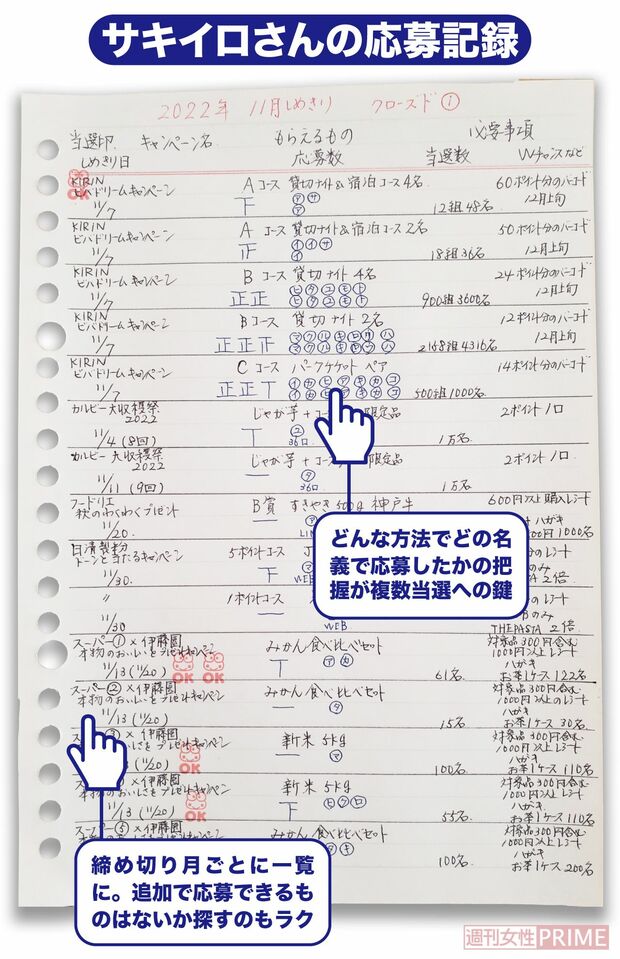 サキイロさんの応募記録
2022年 11月しめきり クローズド①
当選印 キャンペーン名 もらえるもの 必要事項
しめきり日 応募数 当選数 Wチャンスなど
KIRIN Aコース 貸切ナイト&宿泊コース4名 60ポイント分のバーコード
ビバドリームキャンペーン ㋐㋚ 12月上旬
OK
11/7 下 ㋐ 12組48名
KIRIN Aコース 貸切ナイト&宿泊コース2名 50ポイント分のバーコード
ビバドリームキャンペーン 正 ㋑㋑㋚ 12月上旬
11/7 ㋑ 18組36名
KIRIN Bコース 貸切ナイト4名 24ポイント分のバーコード
ビバドリームキャンペーン 正正 12月上旬
11/7 900組3600名
KIRIN Bコース 貸切ナイト2名 12ポイント分のバーコード
ビバドリームキャンペーン 正正下 12月上旬
11/7 2168組4316名
KIRIN Cコース パークチケット ペア 14ポイント分のバーコード
ビバドリームキャンペーン 正正
11/7 500組1000名
カルビー大収穫祭 じゃが芋+コー 限定品 2ポイント1口
2022 ㋴
11/4(8回) 36口 1万名
カルビー大収穫祭 じゃが芋+コー 限定品 2ポイント1口
2022 ㋟
11/11(9回) 36口 1万名
フードリエ B賞 すきやき500g 神戸牛 600円以上購入レシート
秋のわくわくプレゼント 一 ハガキ
11/20. 1000名
日清製粉 5ポイントコース
ドーンと当たるキャンペーン 下
11/30. WEB 2倍
〃 1ポイントコース のレシート
一 のみ
11/30 WEB THEPASTA 2倍
スーパー①×伊藤園 みかん食べ比べセット 対象品300円含む
本物のおいしさプレゼントキャンペーン ㋐㋕ 1000円以上レシート
OK OK ハガキ
11/13(11/20) 61名 お茶1ケース122名
スーパー②×伊藤園 みかん食べ比べセット 対象品300円含む
本物のおいしさプレゼントキャンペーン 一 ㋟ 1000円以上のレシート
ハガキ
11/13(11/20) 15名 お茶1ケース30名
×伊藤園 新米5kg 対象品300円含む
いしさプレゼントキャンペーン 一 ㋮ 1000円以上レシート
OK ハガキ
(11/20) 100名 お茶1ケース110名
×伊藤園 新米5kg 対象品300円含む
本物のおいしさプレゼントキャンペーン 下 ㋪㋗㋺ 1000円以上レシート
OK ハガキ
11/13(11/20) 55名 お茶1ケース110名
スーパー⑤×伊藤園 みかん食べ比べセット 対象品300円含む
㋐㋖ 1000円以上レシート
ハガキ
100名 お茶1ケース200名
どんな方法でどの名
義で応募したかの把
握が複数当選への鍵
締め切り月ごとに一覧
に。追加で応募できるも
のはないか探すのもラク
週刊女性PRIME